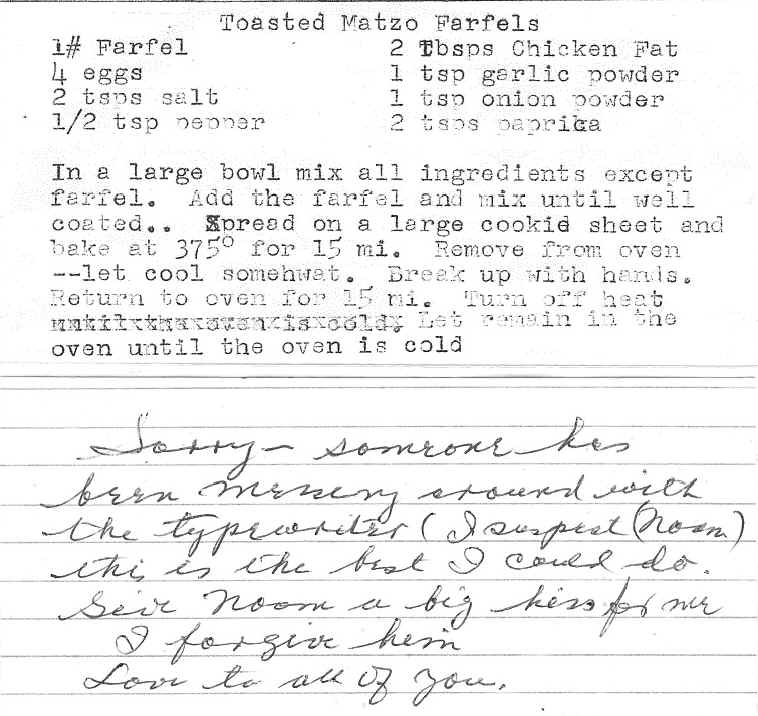 Toasted Matzo Farfels
1# Farfel 2 Tbsps Chicken Fat
4 eggs 1 tsp garlic powder
2 tsps salt 1 tsp onion powder
1/2 tsp pepper 2 tsps paprika
In a large bowl mix all ingredients except
farfel. Add the farfel and mix until well
coated.. Spread on a large cookie sheet and
bake at 375° for 15 mi. Remove from oven
--let cool somehwat. Break up with hands.
Return to oven for 15 mi. Turn off heat
until the oven is cold. Let remain in the
oven until the oven is cold
Sorry - someone has
been messing around with
the typewriter (I suspect (Noam)
this is the best I could do.
Give Noam a big kiss for me
I forgive him
Love to all of you.